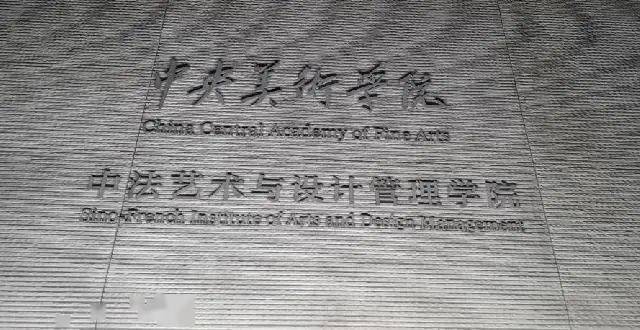 中央美術学院
China Central Academy of Fine Arts
中法艺术与设计管理学院
Sino-French Institute of Arts and Design Management